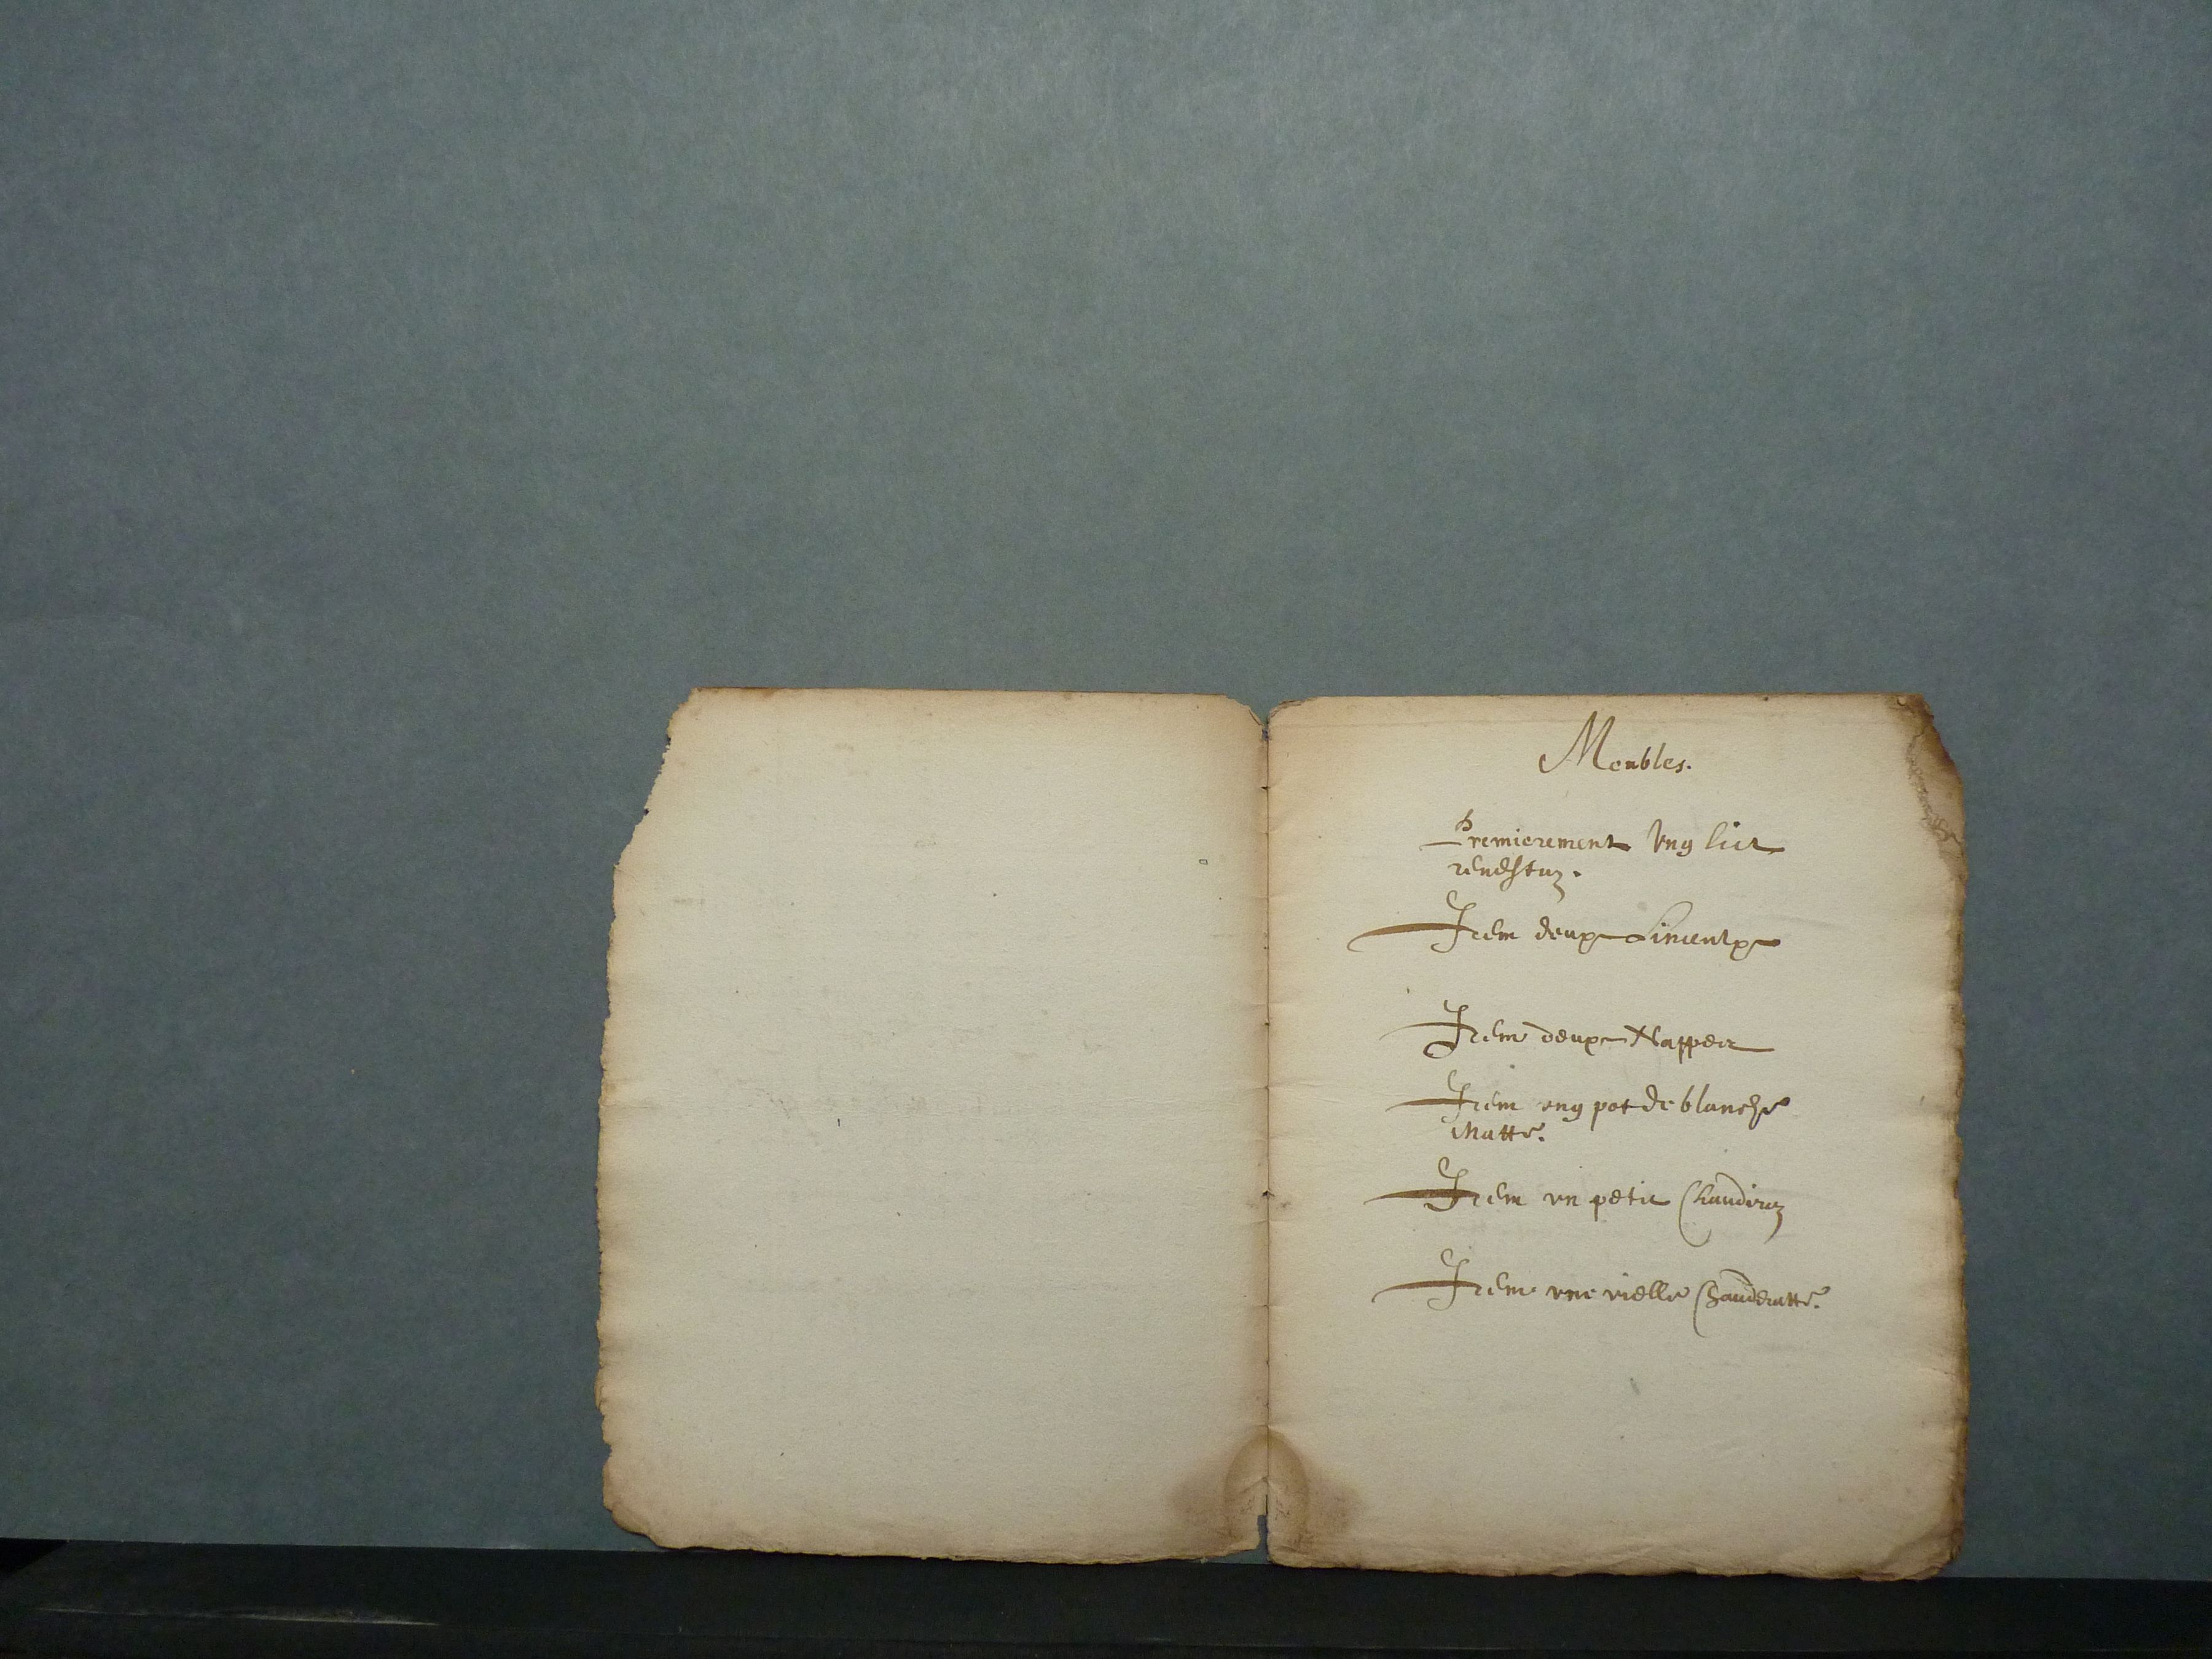 Meubles.
Premierement Vng lict
revestuz.
Item deux Linceulx
Item deux Nappes
Item vng pot de blanche
Matte.
Item vn petit Chaudiruz
Item vne vielle Chauderatte.